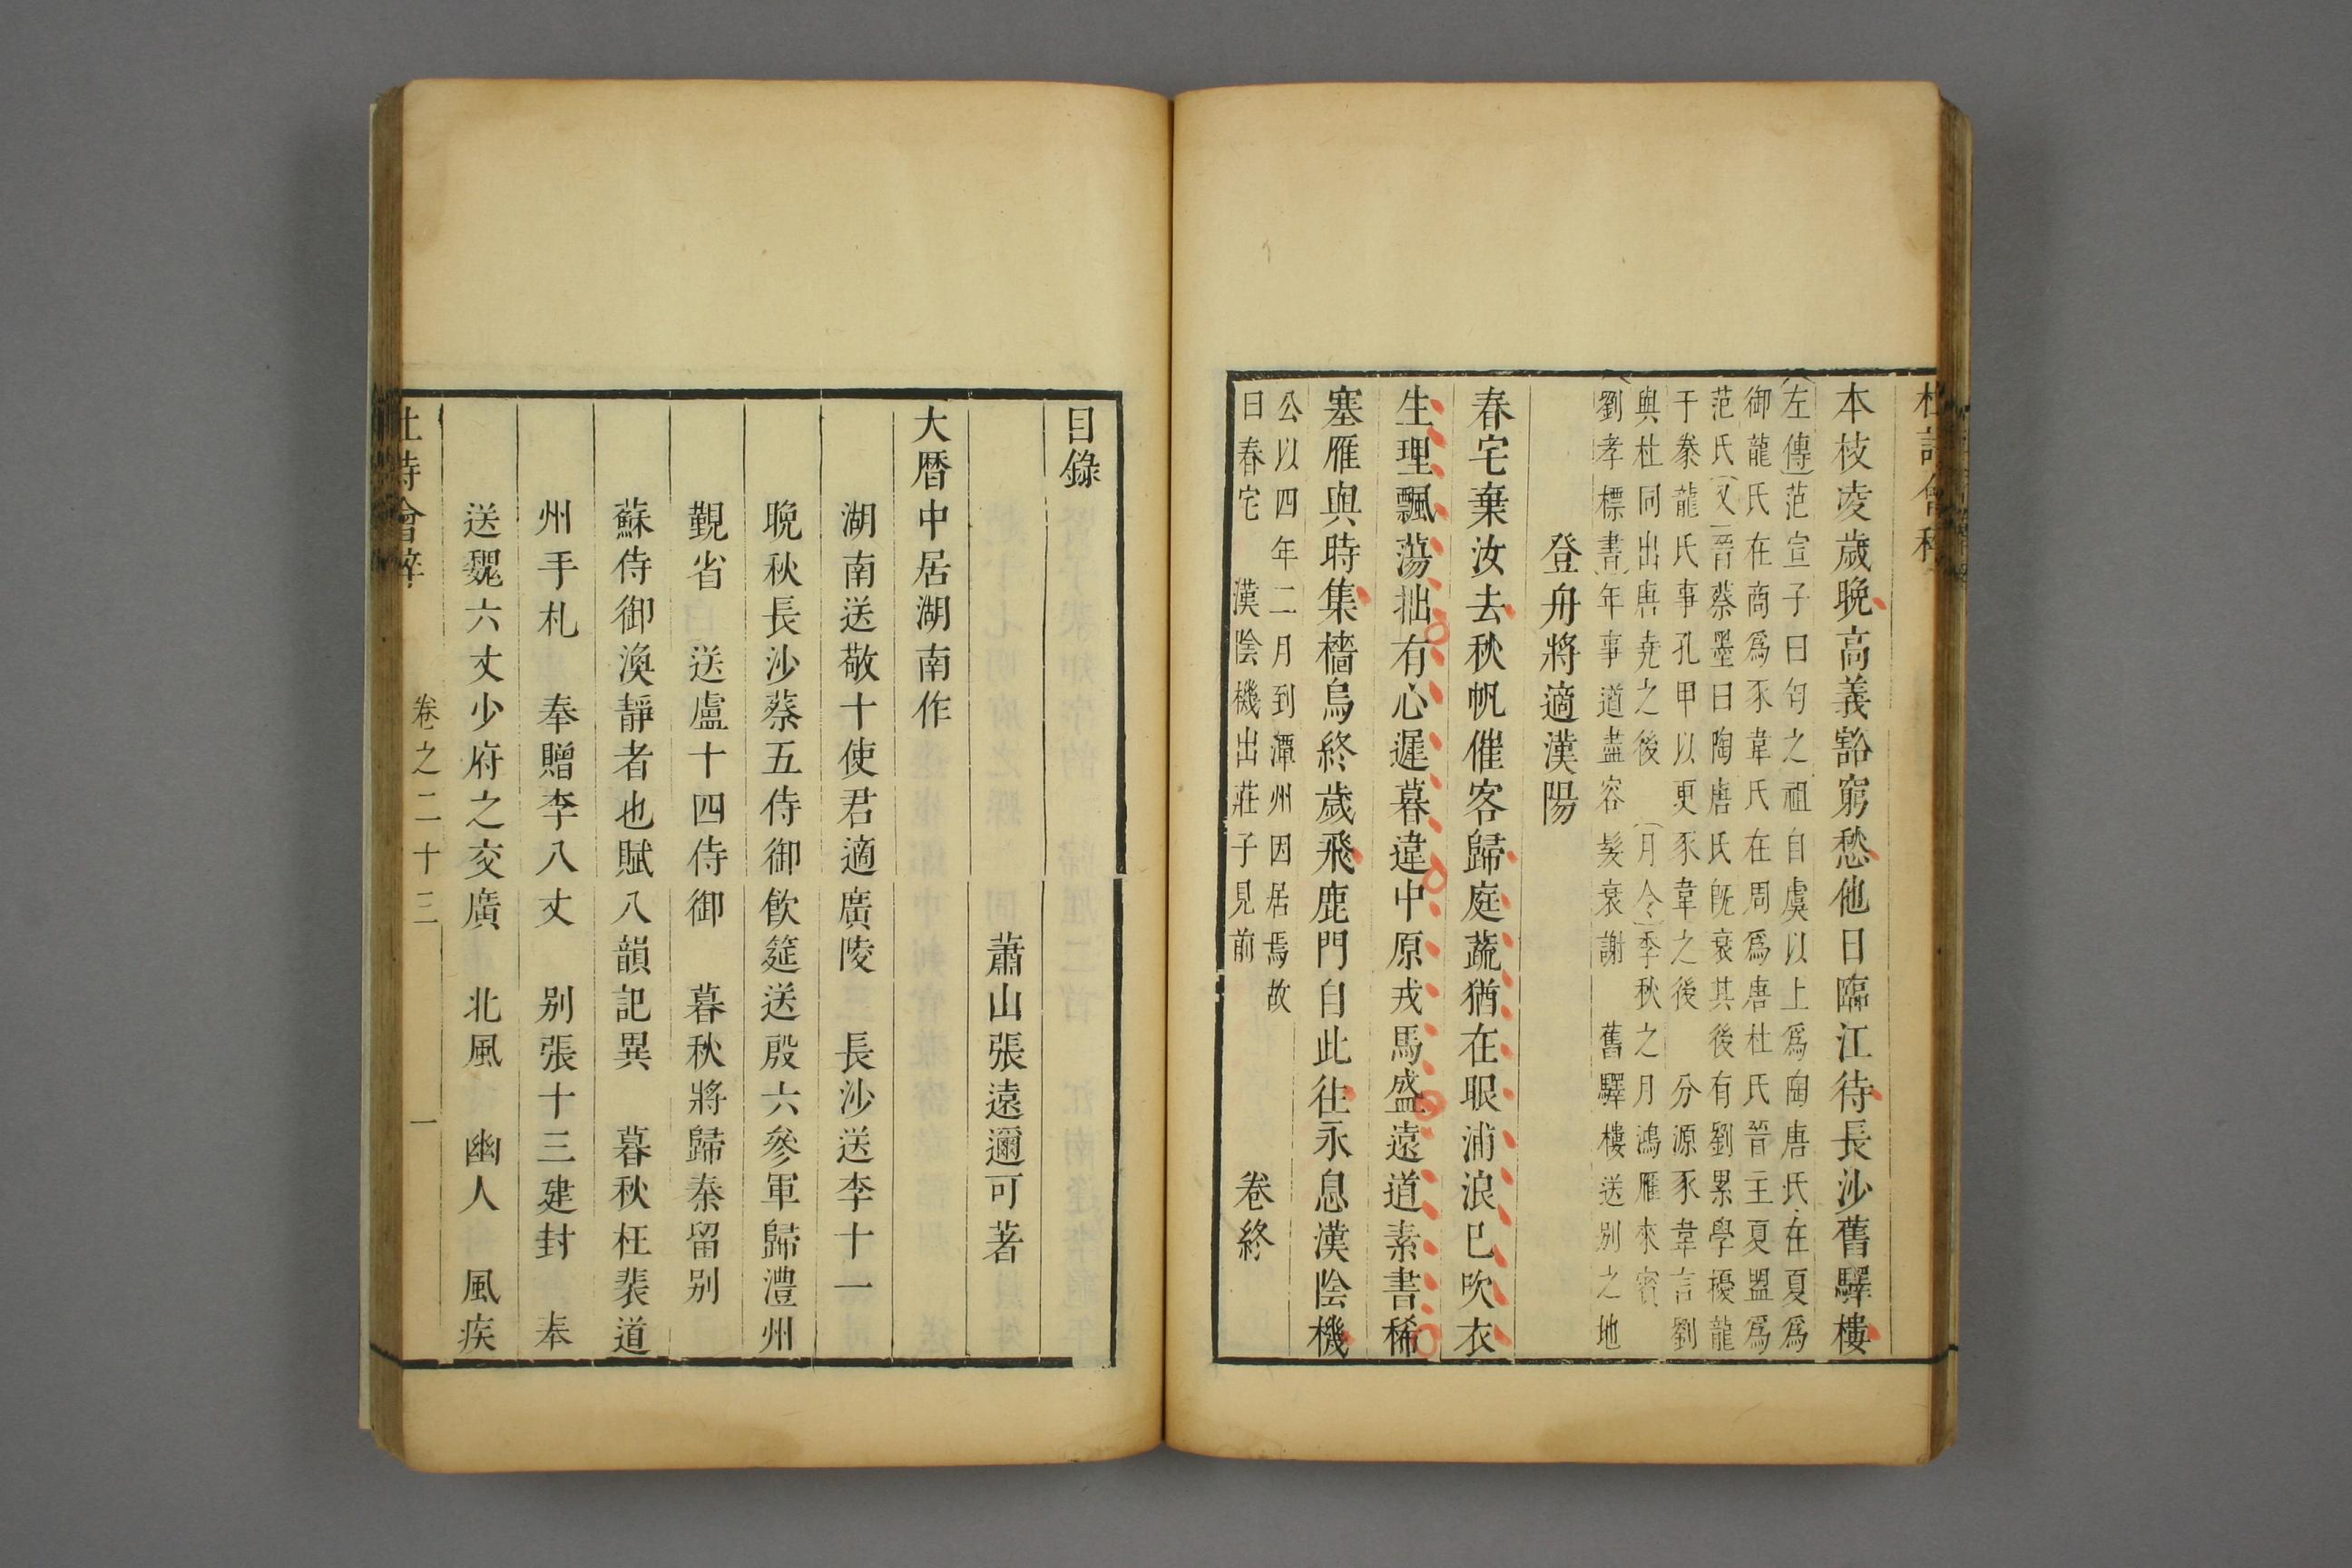 本枝凌歲晚高義豁窮愁他日臨江待長沙舊驛樓
左傳范宣子曰匄之祖自虞以上爲陶唐氏在夏爲
御龍氏在商爲豕韋氏在周爲唐杜氏晉主夏盟爲
范氏又晉蔡墨曰陶唐氏旣衰其後有劉累學擾龍
于豢龍氏事孔甲以更豕韋之後　分源豕韋言劉
與杜同出唐堯之後　月令季秋之月鴻雁來賓
劉孝標書年事道盡容髮衰謝　舊驛樓送別之地
登舟將適漢陽
春宅棄汝去秋帆催客歸庭蔬猶在眼浦浪已吹衣
生理飄蕩拙有心遲暮違中原戎馬盛遠道素書稀
塞雁與時集檣烏終歲飛鹿門自此往永息漢陰機
公以四年二月到潭州因居焉故
曰春宅　漢陰機出莊子見前
卷終
目錄
蕭山張遠邇可著
大曆中居湖南作
湖南送敬十使君適廣陵　長沙送李十一
晚秋長沙蔡五侍御飲筵送殷六參軍歸澧州
覲省　送盧十四侍御　暮秋將歸秦留別
蘇侍御渙靜者也賦八韻記異　暮秋枉裴道
州手札　奉贈李八丈　別張十三建封　奉
送魏六丈少府之交廣　北風　幽人　風疾
杜詩會稡　卷之二十三　一